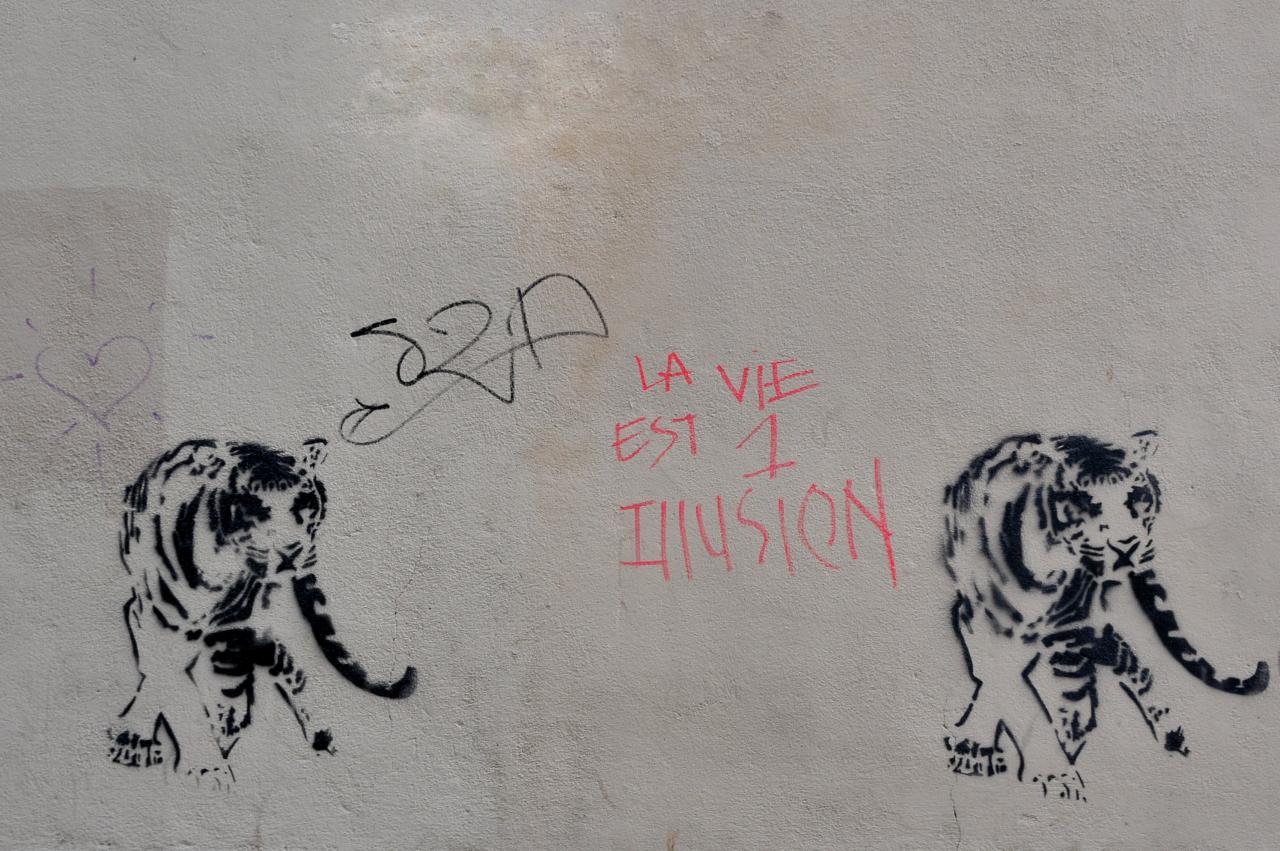 LA VIE
EST 1
IllUSION